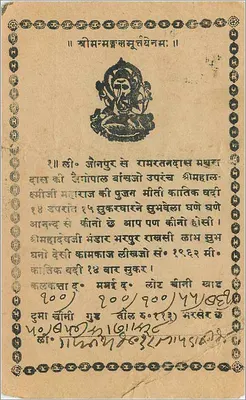 ॥ श्रीमन्मङ्गलमूर्त्तयेनमः ॥
१॥ ली० जौनपुर से रामरतनदास मथुरा
दास की जैगोपाल बांचजो उपरंच श्रीमहाल-
क्ष्मीजी महाराज की पुजन मीती कातिक वदी
१४ उपरांत १५ सुकरवारने सुभवेला घणे घणे
आनन्द से कीनो छै आप पण कीनो होसी।
श्रीमहादेवजी भंडार भरपुर राखसी लाभ सुभ
घनो देसी कामकाज लीखजो सं० १९६२ मी०
कातिक वदी १४ बार सुकर।
कलकत्ता द० ममई द० लोट चीनी खाड
१००) १००) १००)
दुमा चीनी गुड तौल द० भरसेर छे
ली०